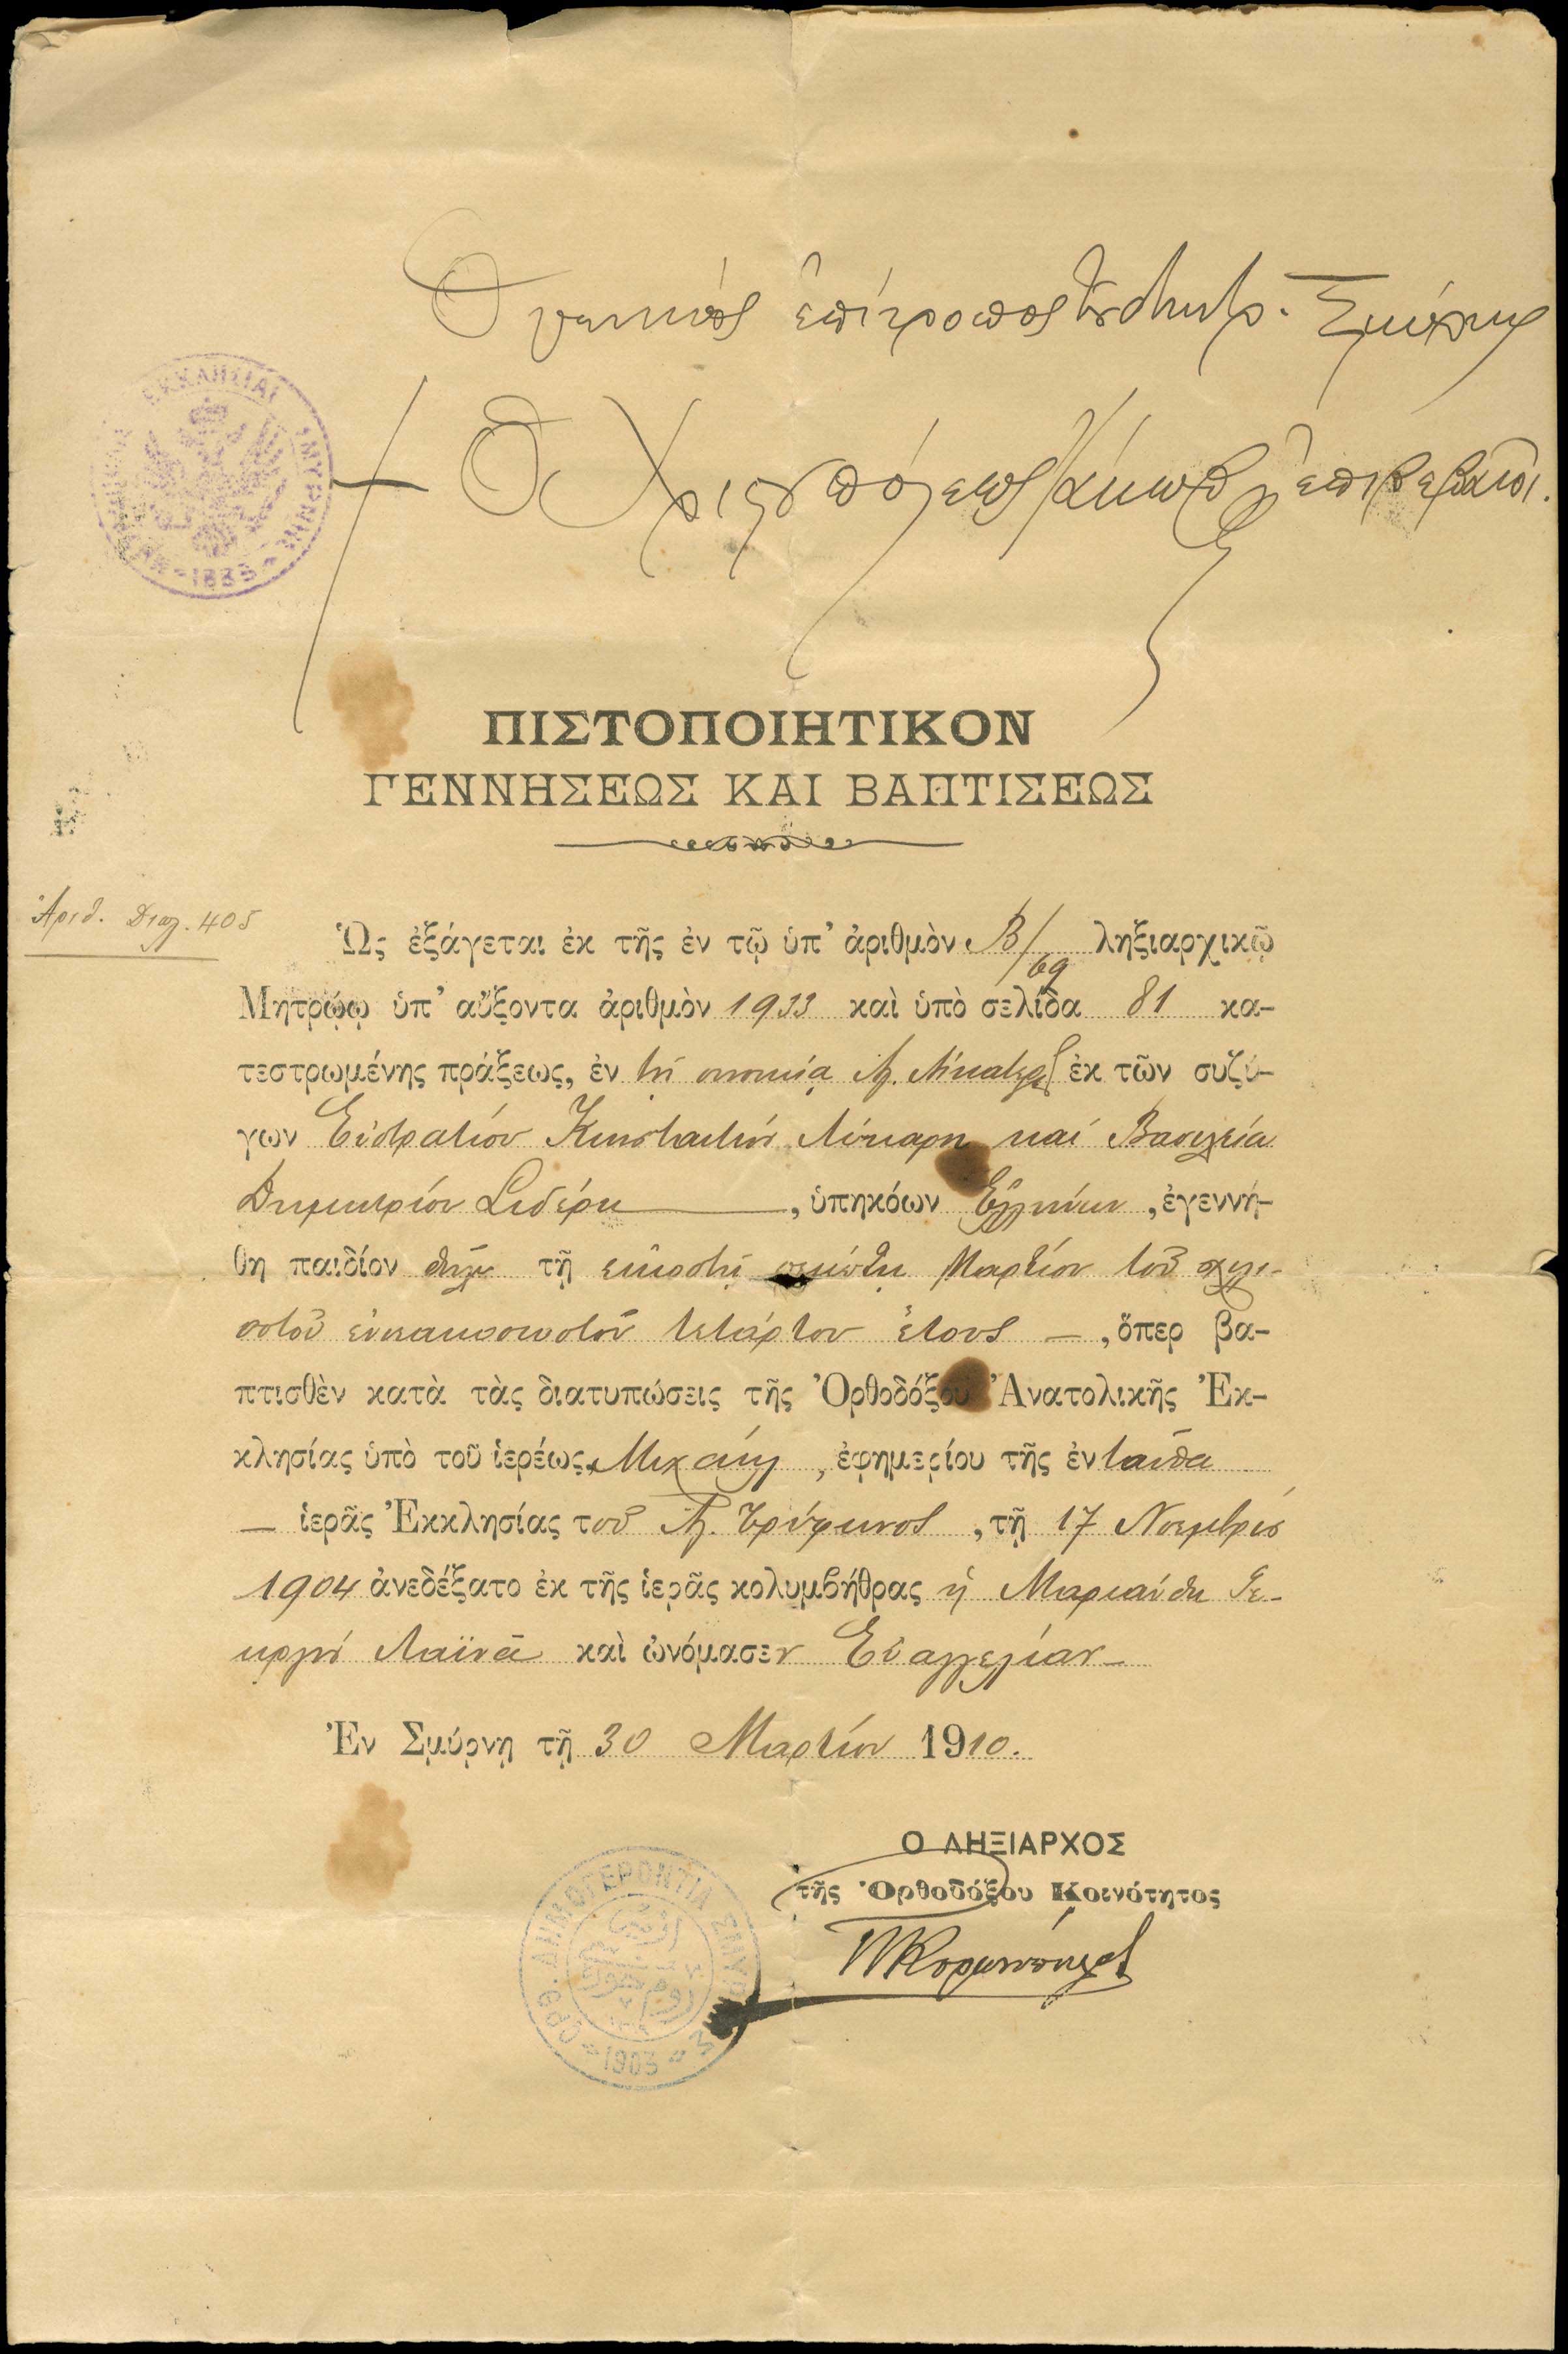 Ὁ γενικὸς ἐπίτροπος τοῦ Μητρ. Σμύρνης
ΕΚΚΛΗΣΙΑΙ ΣΜΥΡΝΗΣ
† Ὁ Χριστουπόλεως Ἰάκωβος ἐπιβεβαιοῖ.
ΠΙΣΤΟΠΟΙΗΤΙΚΟΝ
ΓΕΝΝΗΣΕΩΣ ΚΑΙ ΒΑΠΤΙΣΕΩΣ
Ἀριθ. Διεκ. 405
Ὡς ἐξάγεται ἐκ τῆς ἐν τῷ ὑπ' ἀριθμὸν Β/69 ληξιαρχικῷ
Μητρῴῳ ὑπ' αὔξοντα ἀριθμὸν 1933 καὶ ὑπὸ σελίδα 81 κα-
τεστρωμένης πράξεως, ἐν τῇ συνοικίᾳ Ἁγ. ἐκ τῶν συζύ-
γων Εὐστρατίου Κωνσταντίνου Λύκαρη καὶ Βασιλεία
Δημητρίου Σιδέρη, ὑπηκόων Ἑλλήνων, ἐγεννή-
θη παιδίον θῆλυ τῇ εἰκοστῇ πέμπτῃ Μαρτίου τοῦ χιλι-
οστοῦ ἐννεακοσιοστοῦ τετάρτου ἔτους —, ὅπερ βα-
πτισθὲν κατὰ τὰς διατυπώσεις τῆς Ὀρθοδόξου Ἀνατολικῆς Ἐκ-
κλησίας ὑπὸ τοῦ ἱερέως Μιχαήλ, ἐφημερίου τῆς ἐνταῦθα
— ἱερᾶς Ἐκκλησίας τοῦ Ἁγ. Τρύφωνος, τῇ 17 Νοεμβρίου
1904 ἀνεδέξατο ἐκ τῆς ἱερᾶς κολυμβήθρας ἡ Μαριάνθη Γε-
ωργίου Λαϊνᾶ καὶ ὠνόμασεν Εὐαγγελίαν —
Ἐν Σμύρνῃ τῇ 30 Μαρτίου 1910.
Ο ΛΗΞΙΑΡΧΟΣ
τῆς Ὀρθοδόξου Κοινότητος
ΟΡΘ. ΔΗΜΟΓΕΡΟΝΤΙΑ ΣΜΥΡΝΗΣ
1903